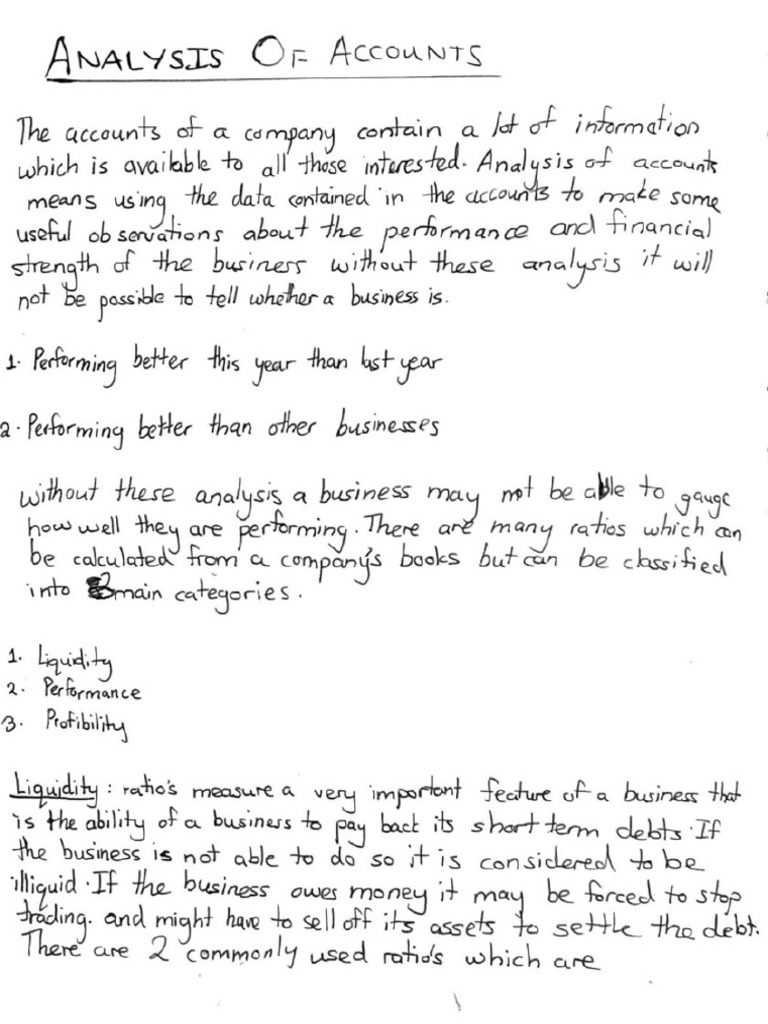 ANALYSIS OF ACCOUNTS
The accounts of a company contain a lot of information
which is available to all those interested. Analysis of accounts
means using the data contained in the accounts to make some
useful observations about the performance and financial
strength of the business without these analysis it will
not be possible to tell whether a business is.
1. Performing better this year than last year
2. Performing better than other businesses
without these analysis a business may not be able to gauge
how well they are performing. There are many ratios which can
be calculated from a company's books but can be classified
into main categories.
1. Liquidity
2. Performance
3. Profibility
Liquidity: ratio's measure a very important feature of a business that
is the ability of a business to pay back its short term debts. If
the business is not able to do so it is considered to be
illiquid. If the business owes money it may be forced to stop
trading. and might have to sell off its assets to settle the debt.
There are 2 commonly used ratio's which are